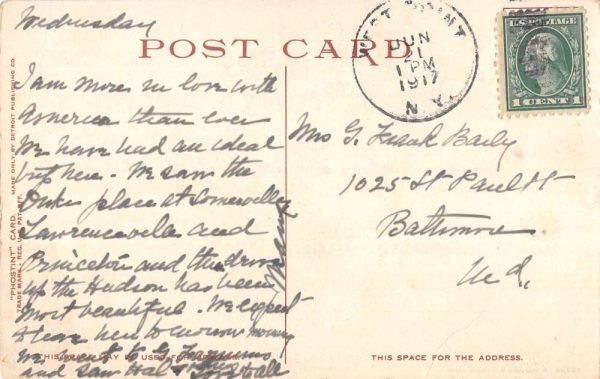 Wednesday
POST CARD
I am more in love with
America than ever
We have had an ideal
trip here - We saw the
Duke place at Somerville,
Lawrenceville and
Princeton and the drive
up the Hudson has been
most beautiful. We expect
to leave here tomorrow morning
we went to
and saw Hal
WEST POINT
JUN
21
1 PM
1917
N.Y.
U.S. POSTAGE
1 CENT 1
Mrs G. Frank Baily
1025 St Paul St
Baltimore
Md.,
"PHOSTINT" CARD. MADE ONLY BY DETROIT PUBLISHING CO.
TRADE MARK. REG. U.S. PAT. OFF.
THIS SPACE MAY BE USED FOR
THIS SPACE FOR THE ADDRESS.